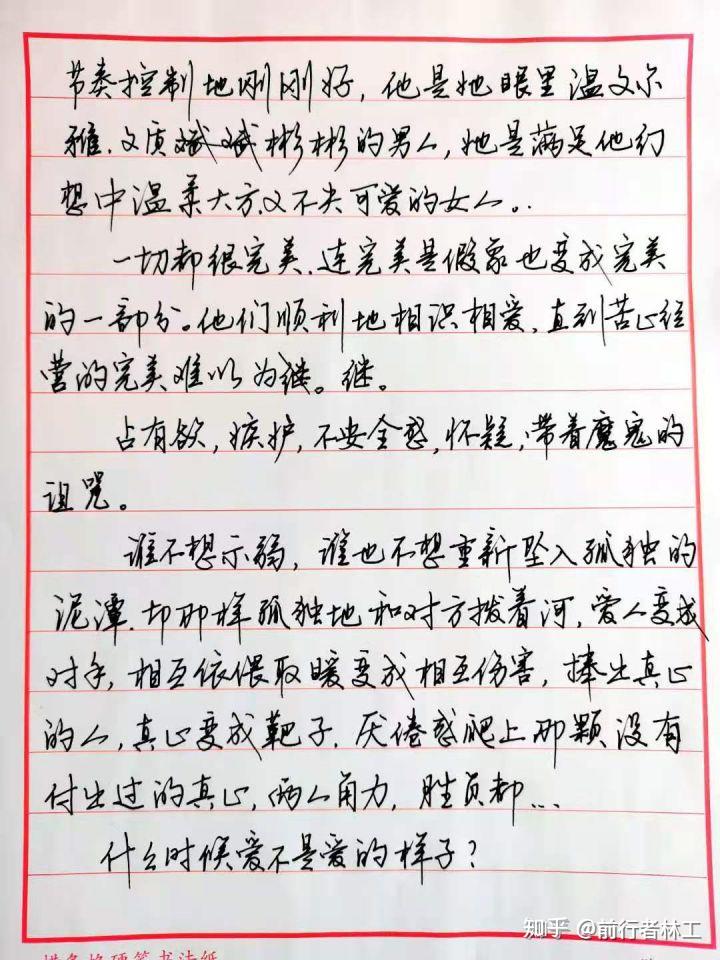 节奏控制地刚刚好，他是她眼里温文尔
雅、文质斌斌彬彬的男人，她是满足他幻
想中温柔大方又不失可爱的女人。
一切都很完美、连完美是假象也变成完美
的一部分。他们顺利地相识相爱，直到苦心经
营的完美难以为继。继。
占有欲，嫉妒，不安全感，怀疑，带着魔鬼的
诅咒。
谁不想示弱，谁也不想重新坠入孤独的
泥潭，却那样孤独地和对方拨着河，爱人变成
对手，相互依偎取暖变成相互伤害，捧出真心
的人，真心变成靶子，厌倦感爬上那颗没有
付出过的真心，两人角力，胜负都…
什么时候爱不是爱的样子？
知乎 @前行者林工
硬笔书法纸